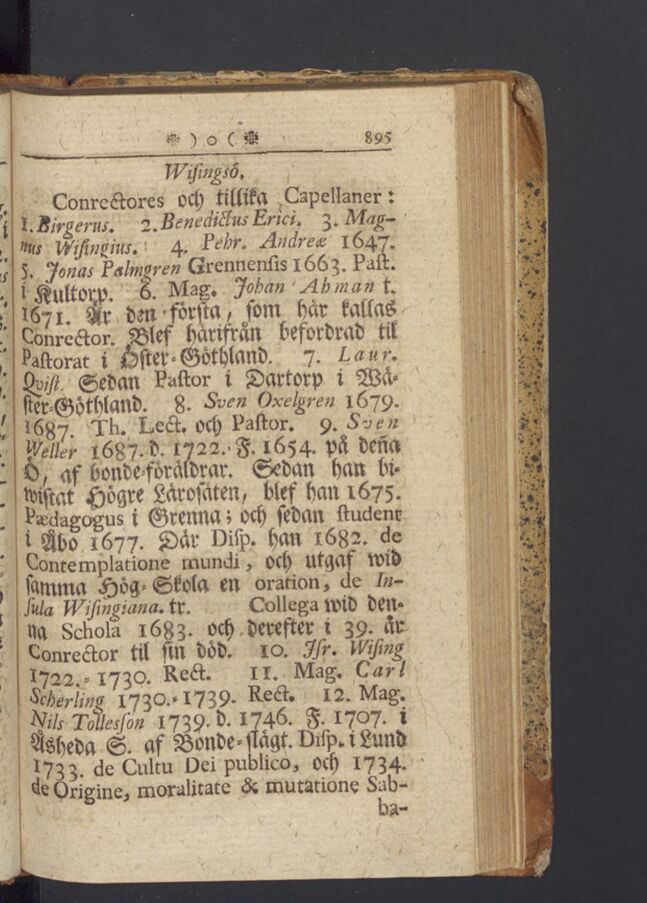 ❉ ) o ( ❉ 895
Wisingsö.
Conrectores och tillika Capellaner:
1. Birgerus. 2. Benedictus Erici. 3. Mag-
nus Wisingius. 4. Pehr. Andreæ 1647.
5. Jonas Palmgren Grennensis 1663. Past.
i Kultorp. 6. Mag. Johan Ahman t.
1671. Är den första, som här kallas
Conrector. Blef härifrån befordrad til
Pastorat i Öster-Göthland. 7. Laur.
Qvist. Sedan Pastor i Dartorp i Wä-
ster-Göthland. 8. Sven Oxelgren 1679.
1687. Th. Lect. och Pastor. 9. Sven
Weller 1687. d. 1722. F. 1654. på deña
Ö, af bonde-föräldrar. Sedan han bi-
wistat Högre Lärosäten, blef han 1675.
Pædagogus i Grenna; och sedan student
i Åbo 1677. Där Disp. han 1682. de
Contemplatione mundi, och utgaf wid
samma Hög-Skola en oration, de In-
sula Wisingiana. tr. Collega wid den-
na Schola 1683. och derefter i 39. år
Conrector til sin död. 10. Isr. Wising
1722.-1730. Rect. 11. Mag. Carl
Scherling 1730.-1739. Rect. 12. Mag.
Nils Tollesson 1739. d. 1746. F. 1707. i
Åsheda S. af Bonde-slägt. Disp. i Lund
1733. de Cultu Dei publico, och 1734.
de Origine, moralitate & mutatione Sab-
ba-